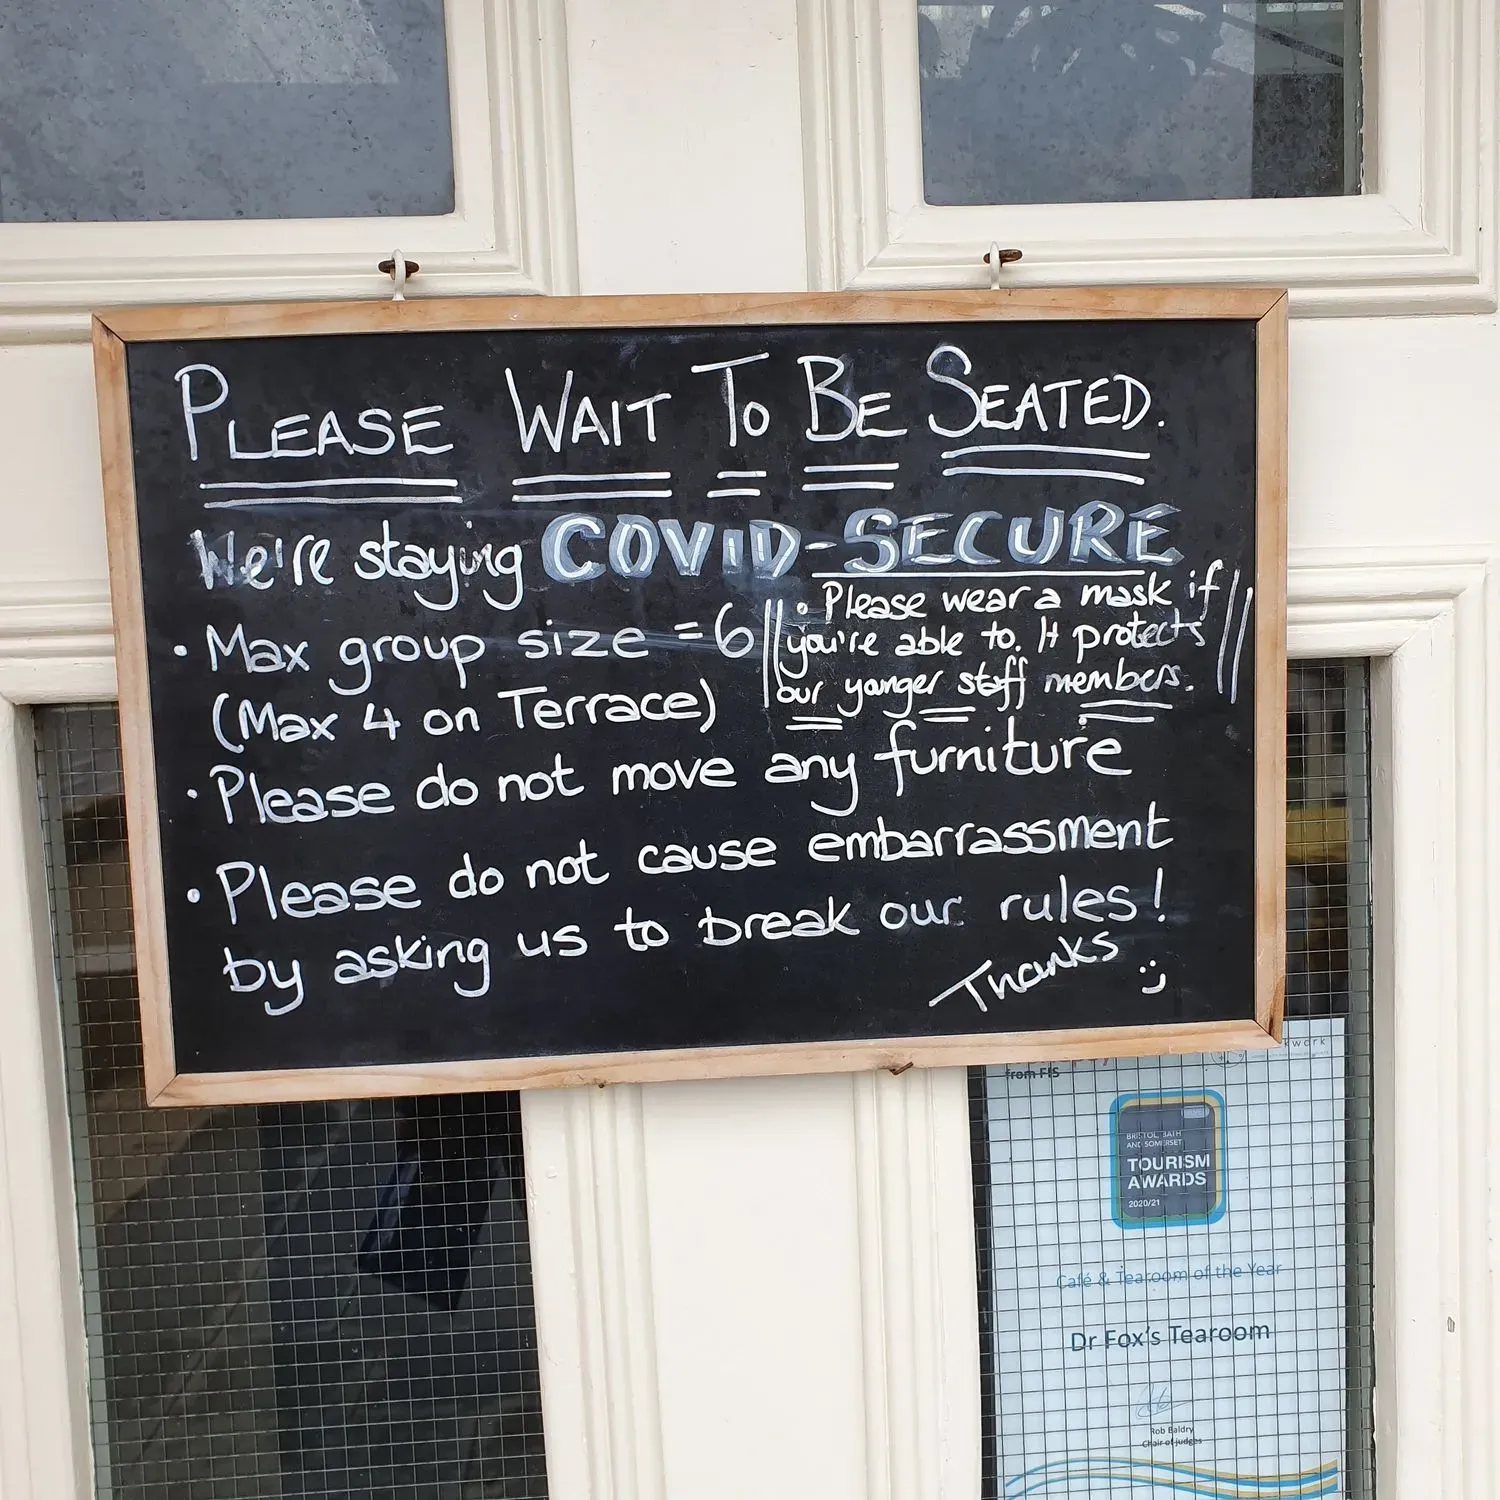 PLEASE WAIT TO BE SEATED.
We're staying COVID-SECURE
• Max group size = 6
(Max 4 on Terrace)
• Please wear a mask if
you're able to. It protects
our yonger staff members.
• Please do not move any furniture
• Please do not cause embarrassment
by asking us to break our rules!
Thanks :)
work
from FIS
BRISTOL, BATH
AND SOMERSET
TOURISM
AWARDS
2020/21
Café & Tearoom of the Year
Dr Fox's Tearoom
Rob Baldry
Chair of judges